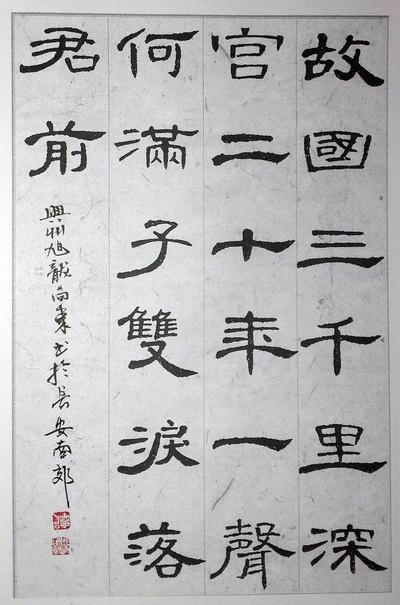 故國三千里深
宮二十年一聲
何滿子雙淚落
君前
興州旭龍向東书於長安南郊